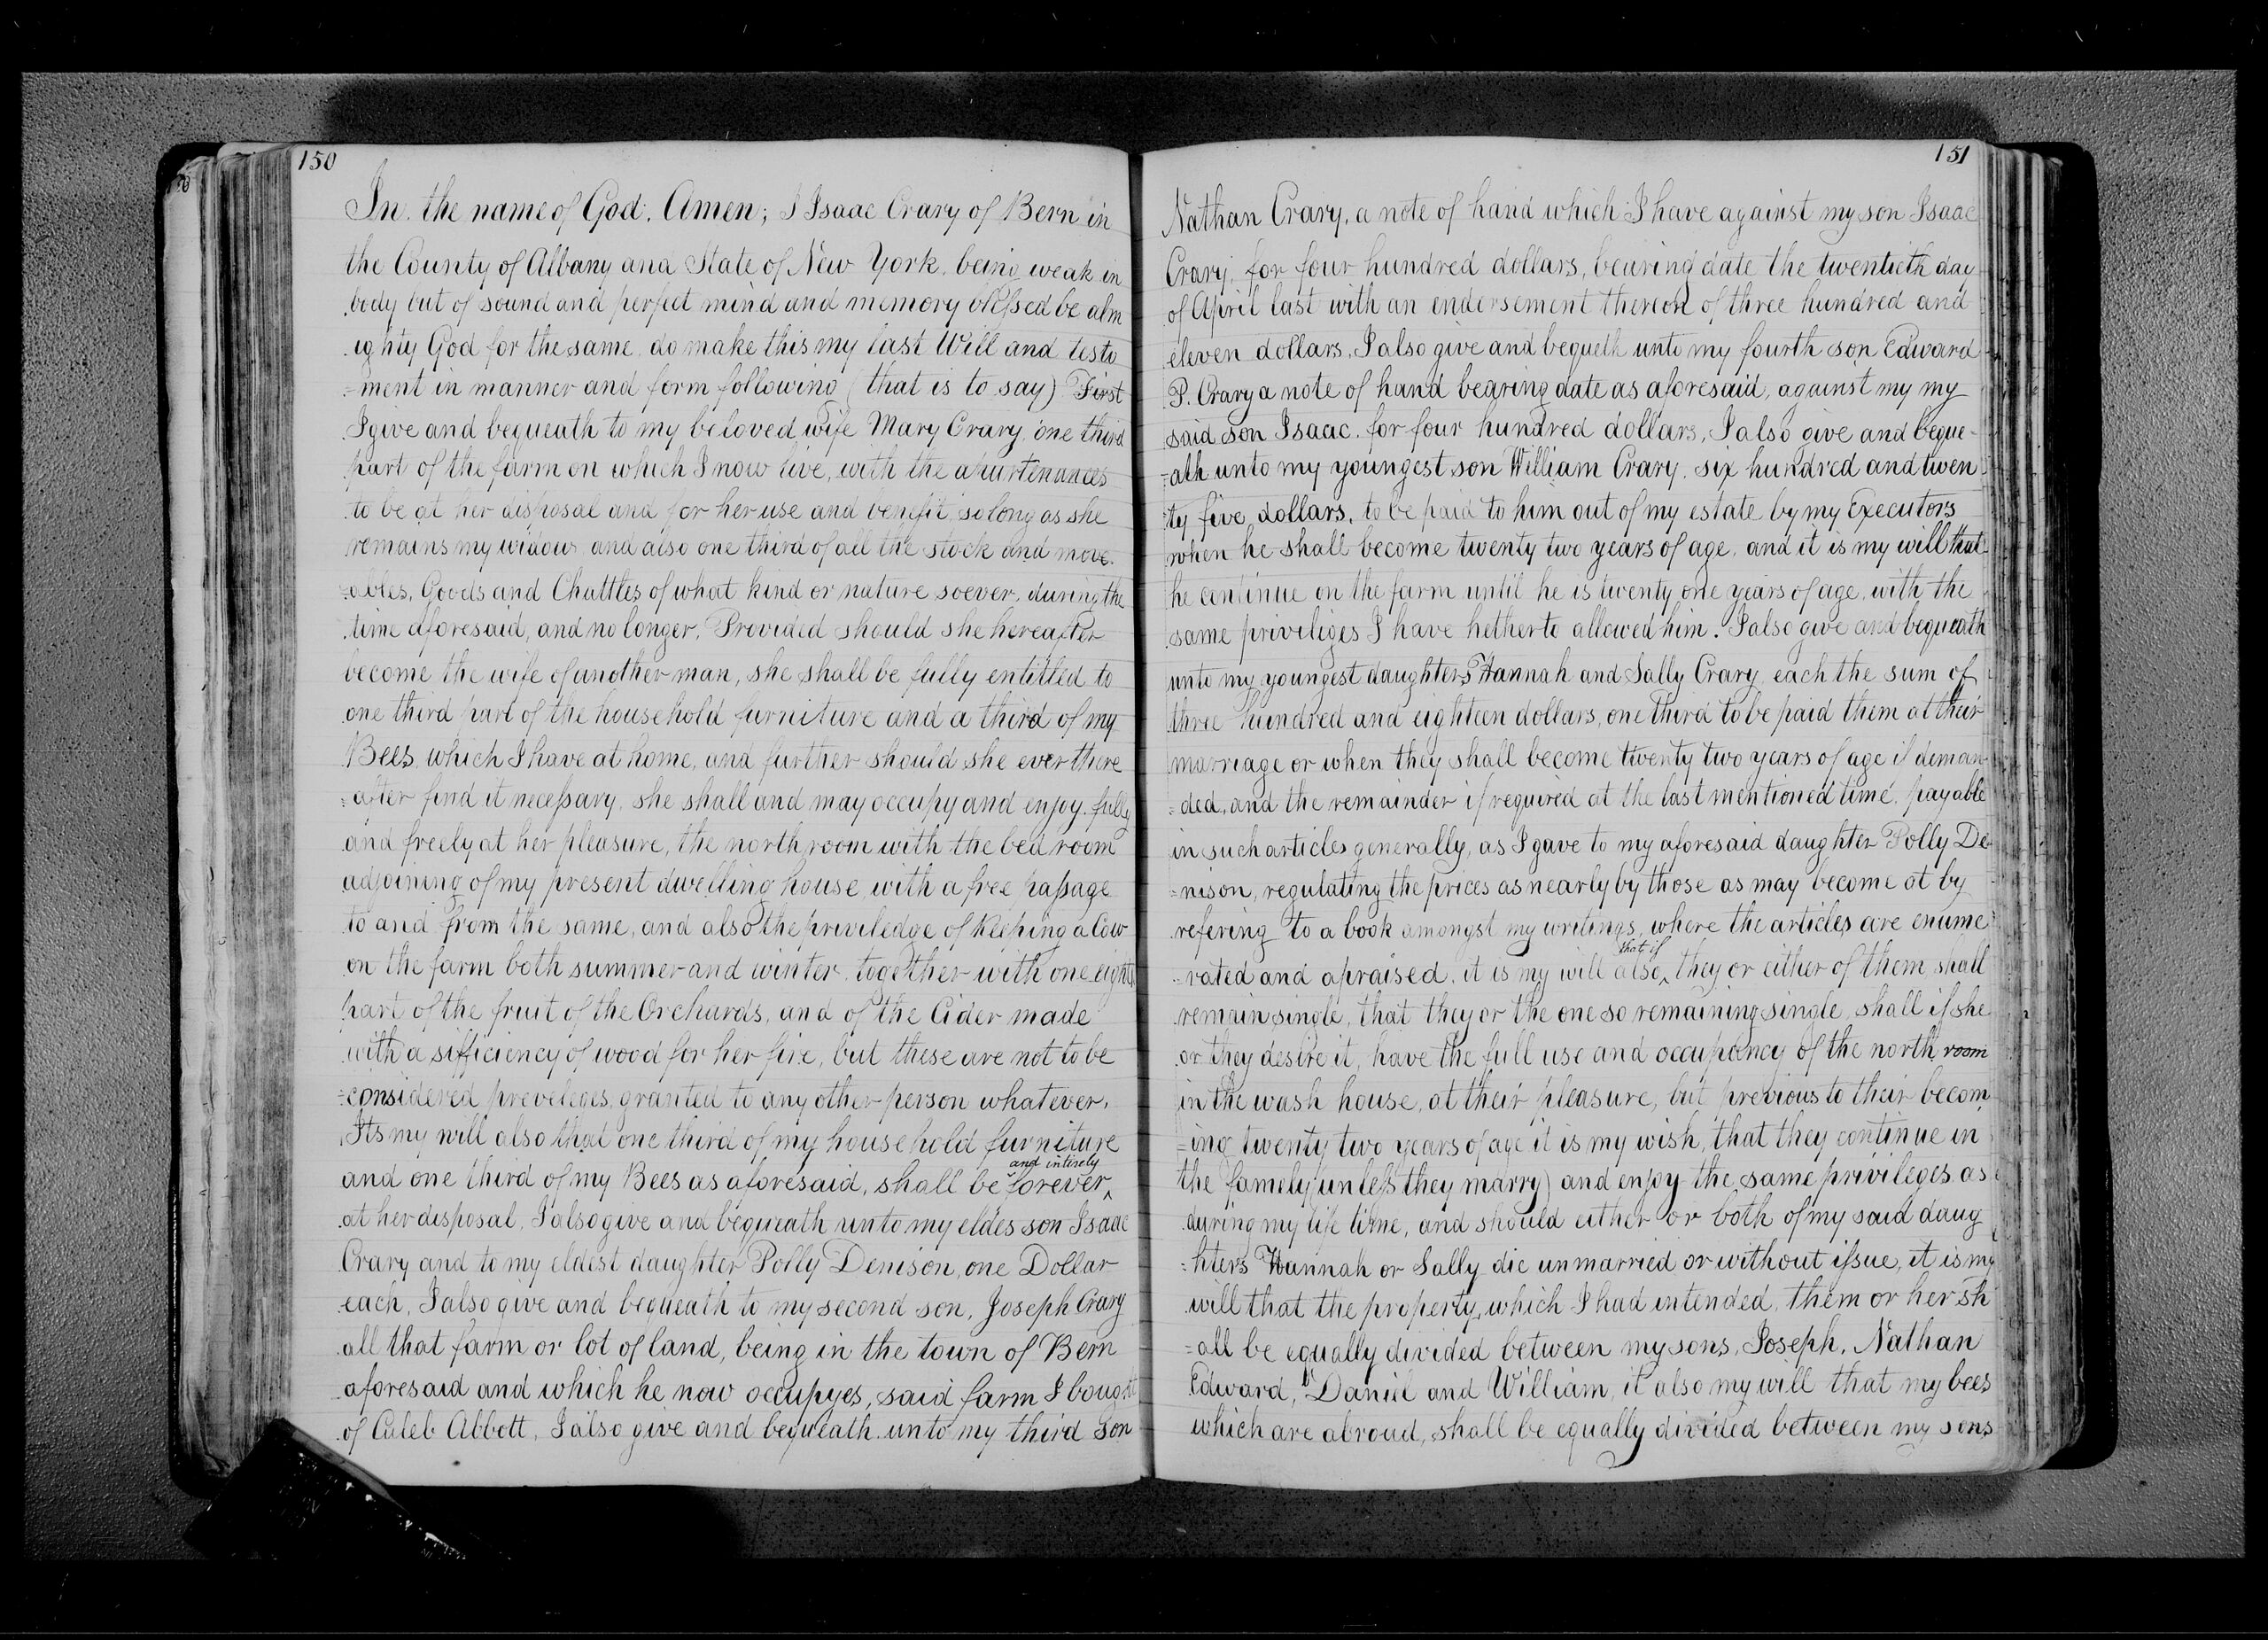 150
In the name of God, Amen; I Isaac Crary of Bern in
the County of Albany and State of New York, being weak in
body but of sound and perfect mind and memory blessed be alm
ighty God for the same, do make this my last Will and testa
=ment in manner and form following (that is to say) First
I give and bequeath to my beloved wife Mary Crary, one third
part of the farm on which I now live, with the apurtenances
to be at her disposal and for her use and benefit so long as she
remains my widow and also one third of all the stock and move
=ables, Goods and Chattles of what kind or nature soever, during the
time aforesaid, and no longer, Provided should she hereafter
become the wife of another man, she shall be fully entitled to
one third part of the household furniture and a third of my
Bees, which I have at home, and further should she ever there
=after find it necessary, she shall and may occupy and enjoy fully
and freely at her pleasure, the north room with the bed room
adjoining of my present dwelling house with a free passage
to and from the same, and also the priviledge of keeping a Cow
on the farm both summer and winter together with one eighth
part of the fruit of the Orchards, and of the Cider made
with a sifficiency of wood for her fire, but these are not to be
=considered preveleges, granted to any other person whatever.
Its my will also that one third of my household furniture
and one third of my Bees as aforesaid, shall be forever ^ and intirely
at her disposal, I also give and bequeath unto my eldes son Isaac
Crary and to my eldest daughter Polly Denison, one Dollar
each, I also give and bequeath to my second son, Joseph Crary
all that farm or lot of land, being in the town of Bern
aforesaid and which he now occupyes, said farm I bought
of Caleb Abbott, I also give and bequeath unto my third Son
151
Nathan Crary, a note of hand which I have against my son Isaac
Crary, for four hundred dollars, bearing date the twentieth day
of April last with an endersement thereon of three hundred and
eleven dollars, I also give and bequeth unto my fourth son Edward
P. Crary a note of hand bearing date as aforesaid, against my my
said son Isaac, for four hundred dollars, I also give and beque-
=ath unto my youngest son William Crary, six hundred and twen
ty five dollars, to be paid to him out of my estate by my Executors
when he shall become twenty two years of age, and it is my will that
he continue on the farm until he is twenty one years of age, with the
same priviliges I have hetherto allowed him. I also give and bequeath
unto my youngest daughters Hannah and Sally Crary, each the sum of
three hundred and eighteen dollars, one third to be paid them at their
marriage or when they shall become twenty two years of age if deman
=ded, and the remainder if required at the last mentioned time, payable
in such articles generally, as I gave to my aforesaid daughter Polly De
=nison, regulating the prices as nearly by those as may become at by
refering to a book amongst my writings, where the articles are enume
=rated and apraised, it is my will also ^ that if they or either of them shall
remain single, that they or the one so remaining single, shall if she
or they desire it, have the full use and occupancy of the north room
in the wash house, at their pleasure, but previous to their becom
=ing twenty two years of age it is my wish, that they continue in
the famely (unless they marry) and enjoy the same privileges as
during my life time, and should either or both of my said daug
=hters Hannah or Sally die unmarried or without issue, it is my
will that the property, which I had intended, them or her sh
=all be equally divided between my sons, Joseph, Nathan
Edward, Daniel and William, it also my will that my bees
which are abroad, shall be equally divided between my sons